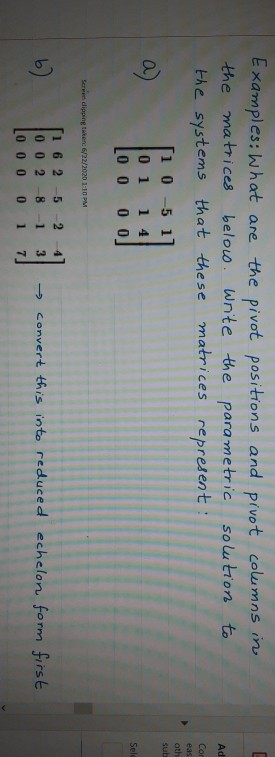 Examples: What are the pivot positions and pivot columns in
the matrices below. Write the parametric solution to
the systems that these matrices represent:
a)
1 0 -5 1
0 1 1 4
0 0 0 0
Screen clipping taken: 6/22/2020 1:10 PM
b)
1 6 2 -5 -2 -4
0 0 2 -8 -1 3
0 0 0 0 1 7
→ convert this into reduced echelon form first
Ad
Cor
eas
oth
sub
Sele